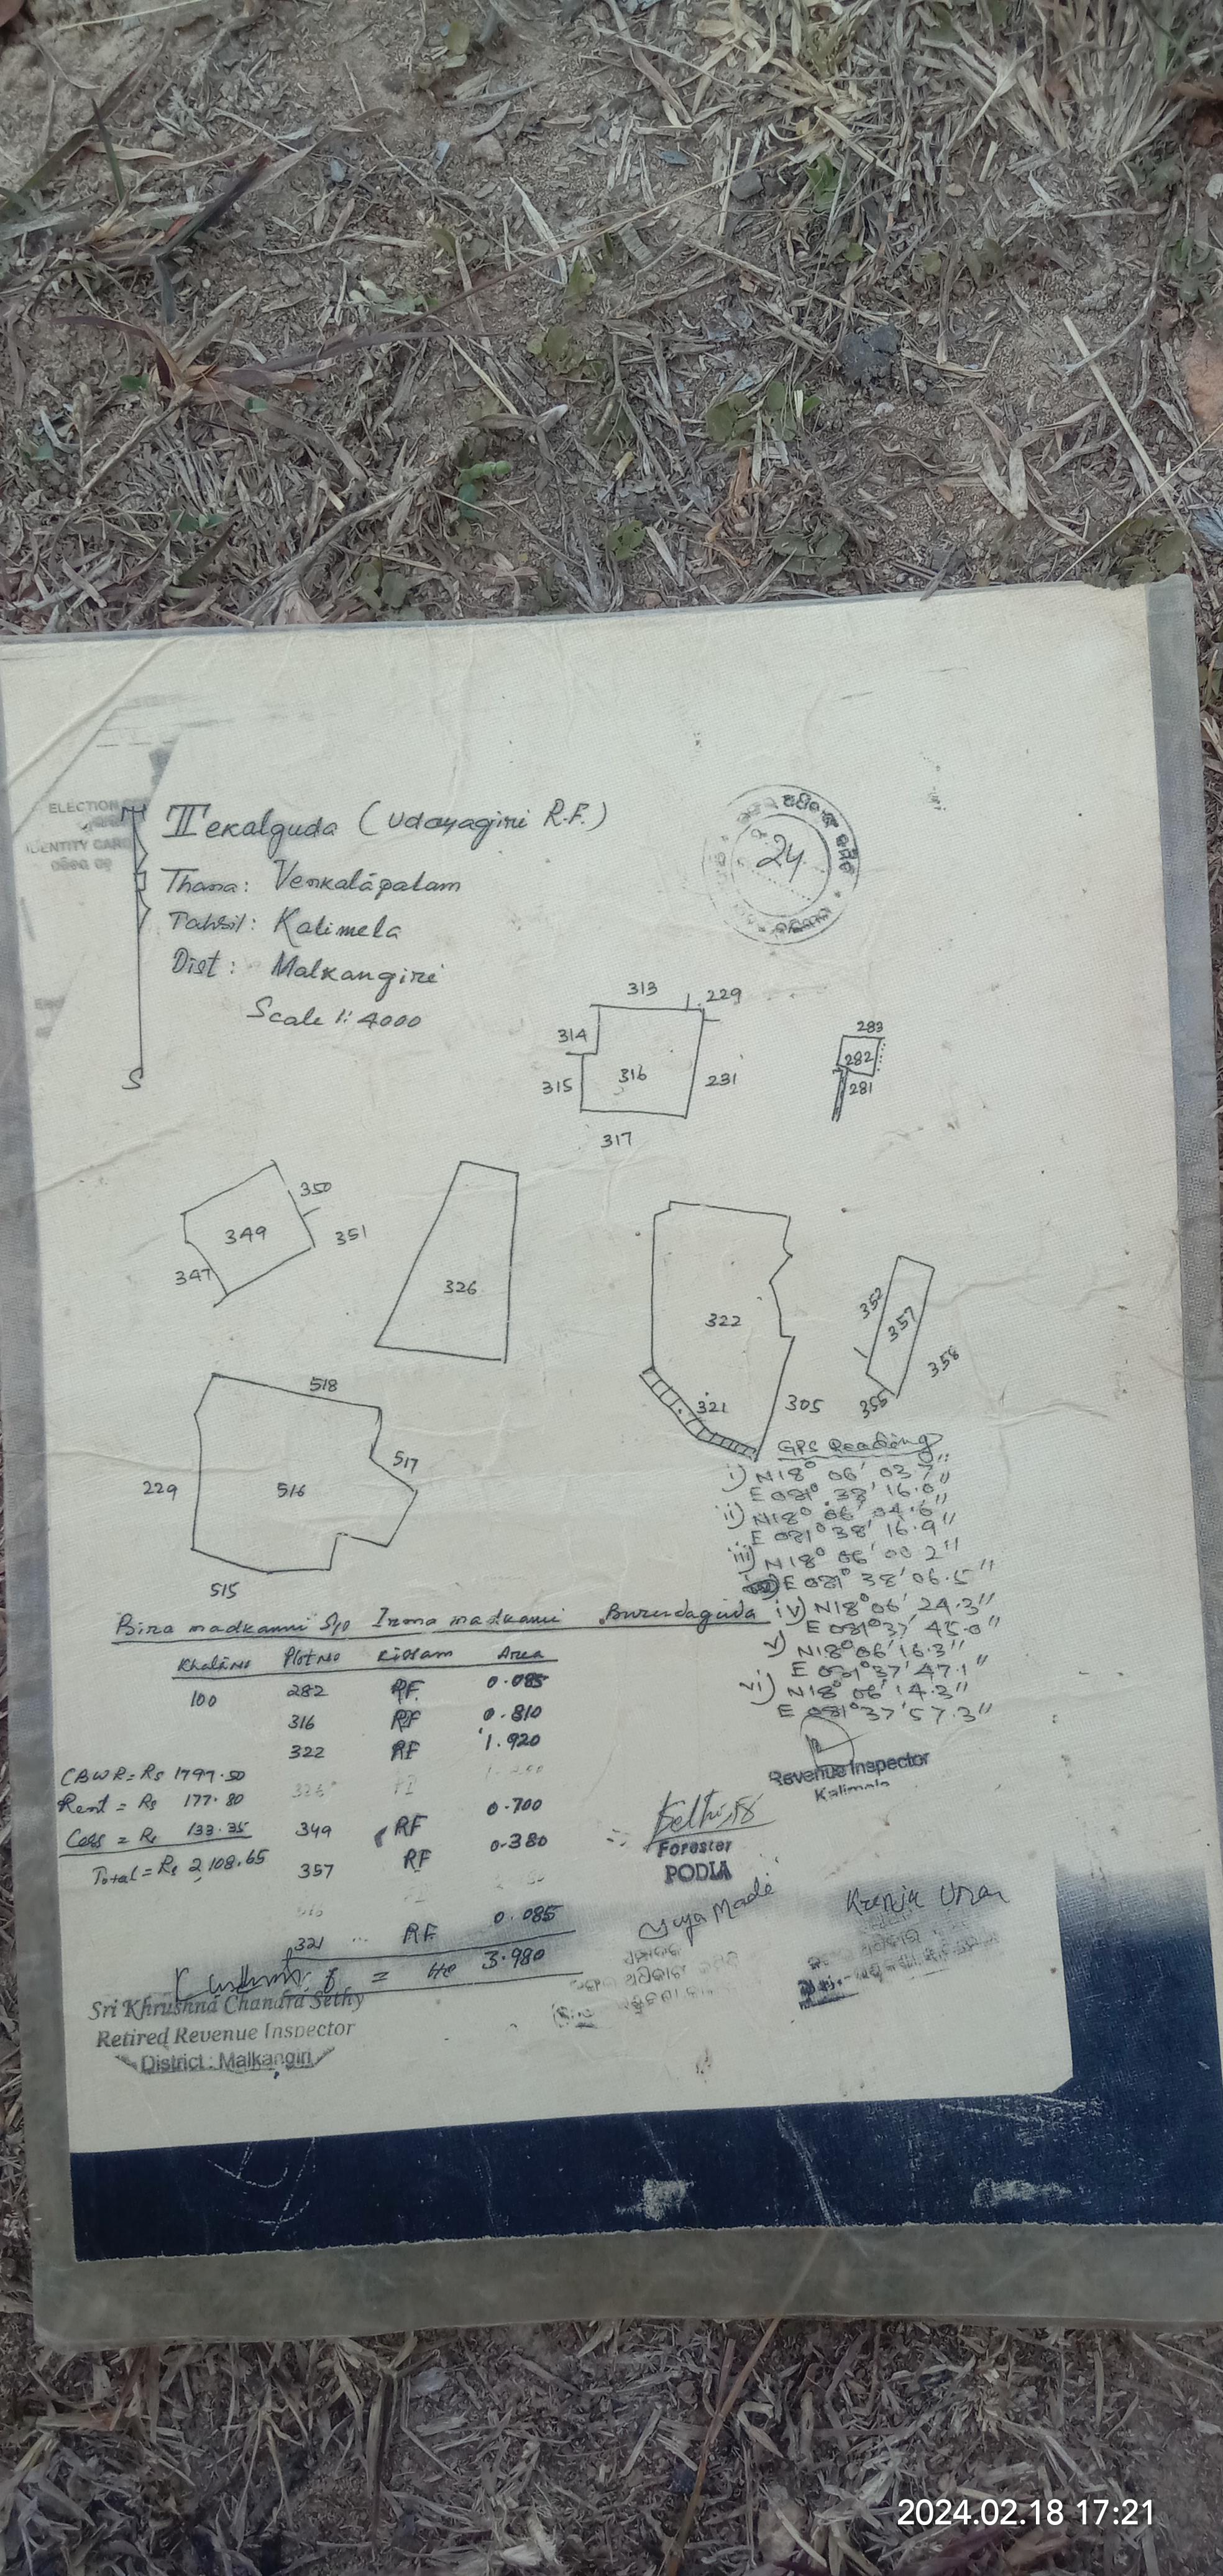 ELECTION
IDENTITY CARD
N
Tekalguda (Udayagiri R.F.)
Thana: Venkatāpalam
Tahsil: Kalimela
Dist: Malkangiri
Scale 1:4000
S
24
313
229
314
316
315
231
317
283
282
281
350
349
351
347
326
322
321
305
352
357
358
355
518
517
229
516
515
GPS Reading
i) N18° 06' 03.7"
E 081° 38' 16.0"
ii) N18° 06' 04.6"
E 081° 38' 16.9"
iii) N18° 06' 00 2"
E 081° 38' 06.5"
iv) N18° 06' 24.3"
E 081° 37' 45.0"
v) N18° 06' 16.3"
E 081° 37' 47.1"
vi) N18° 06' 14.3"
E 081° 37' 57.3"
Bira madkami S/o Irma madkami Burudaguda
Khata No Plot No Kissam Area
100 282 RF. 0.085
316 RF 0.810
322 RF 1.920
326
349 RF 0.700
357 RF 0.380
321 ... RF 0.085
= He 3.980
CBWR = Rs 1797.50
Rent = Rs 177.80
Cess = Rs 133.35
Total = Rs 2,108.65
Revenue Inspector
Kalimela
Forester
PODIA
Sri Khrushna Chandra Sethy
Retired Revenue Inspector
District: Malkangiri
2024.02.18 17:21